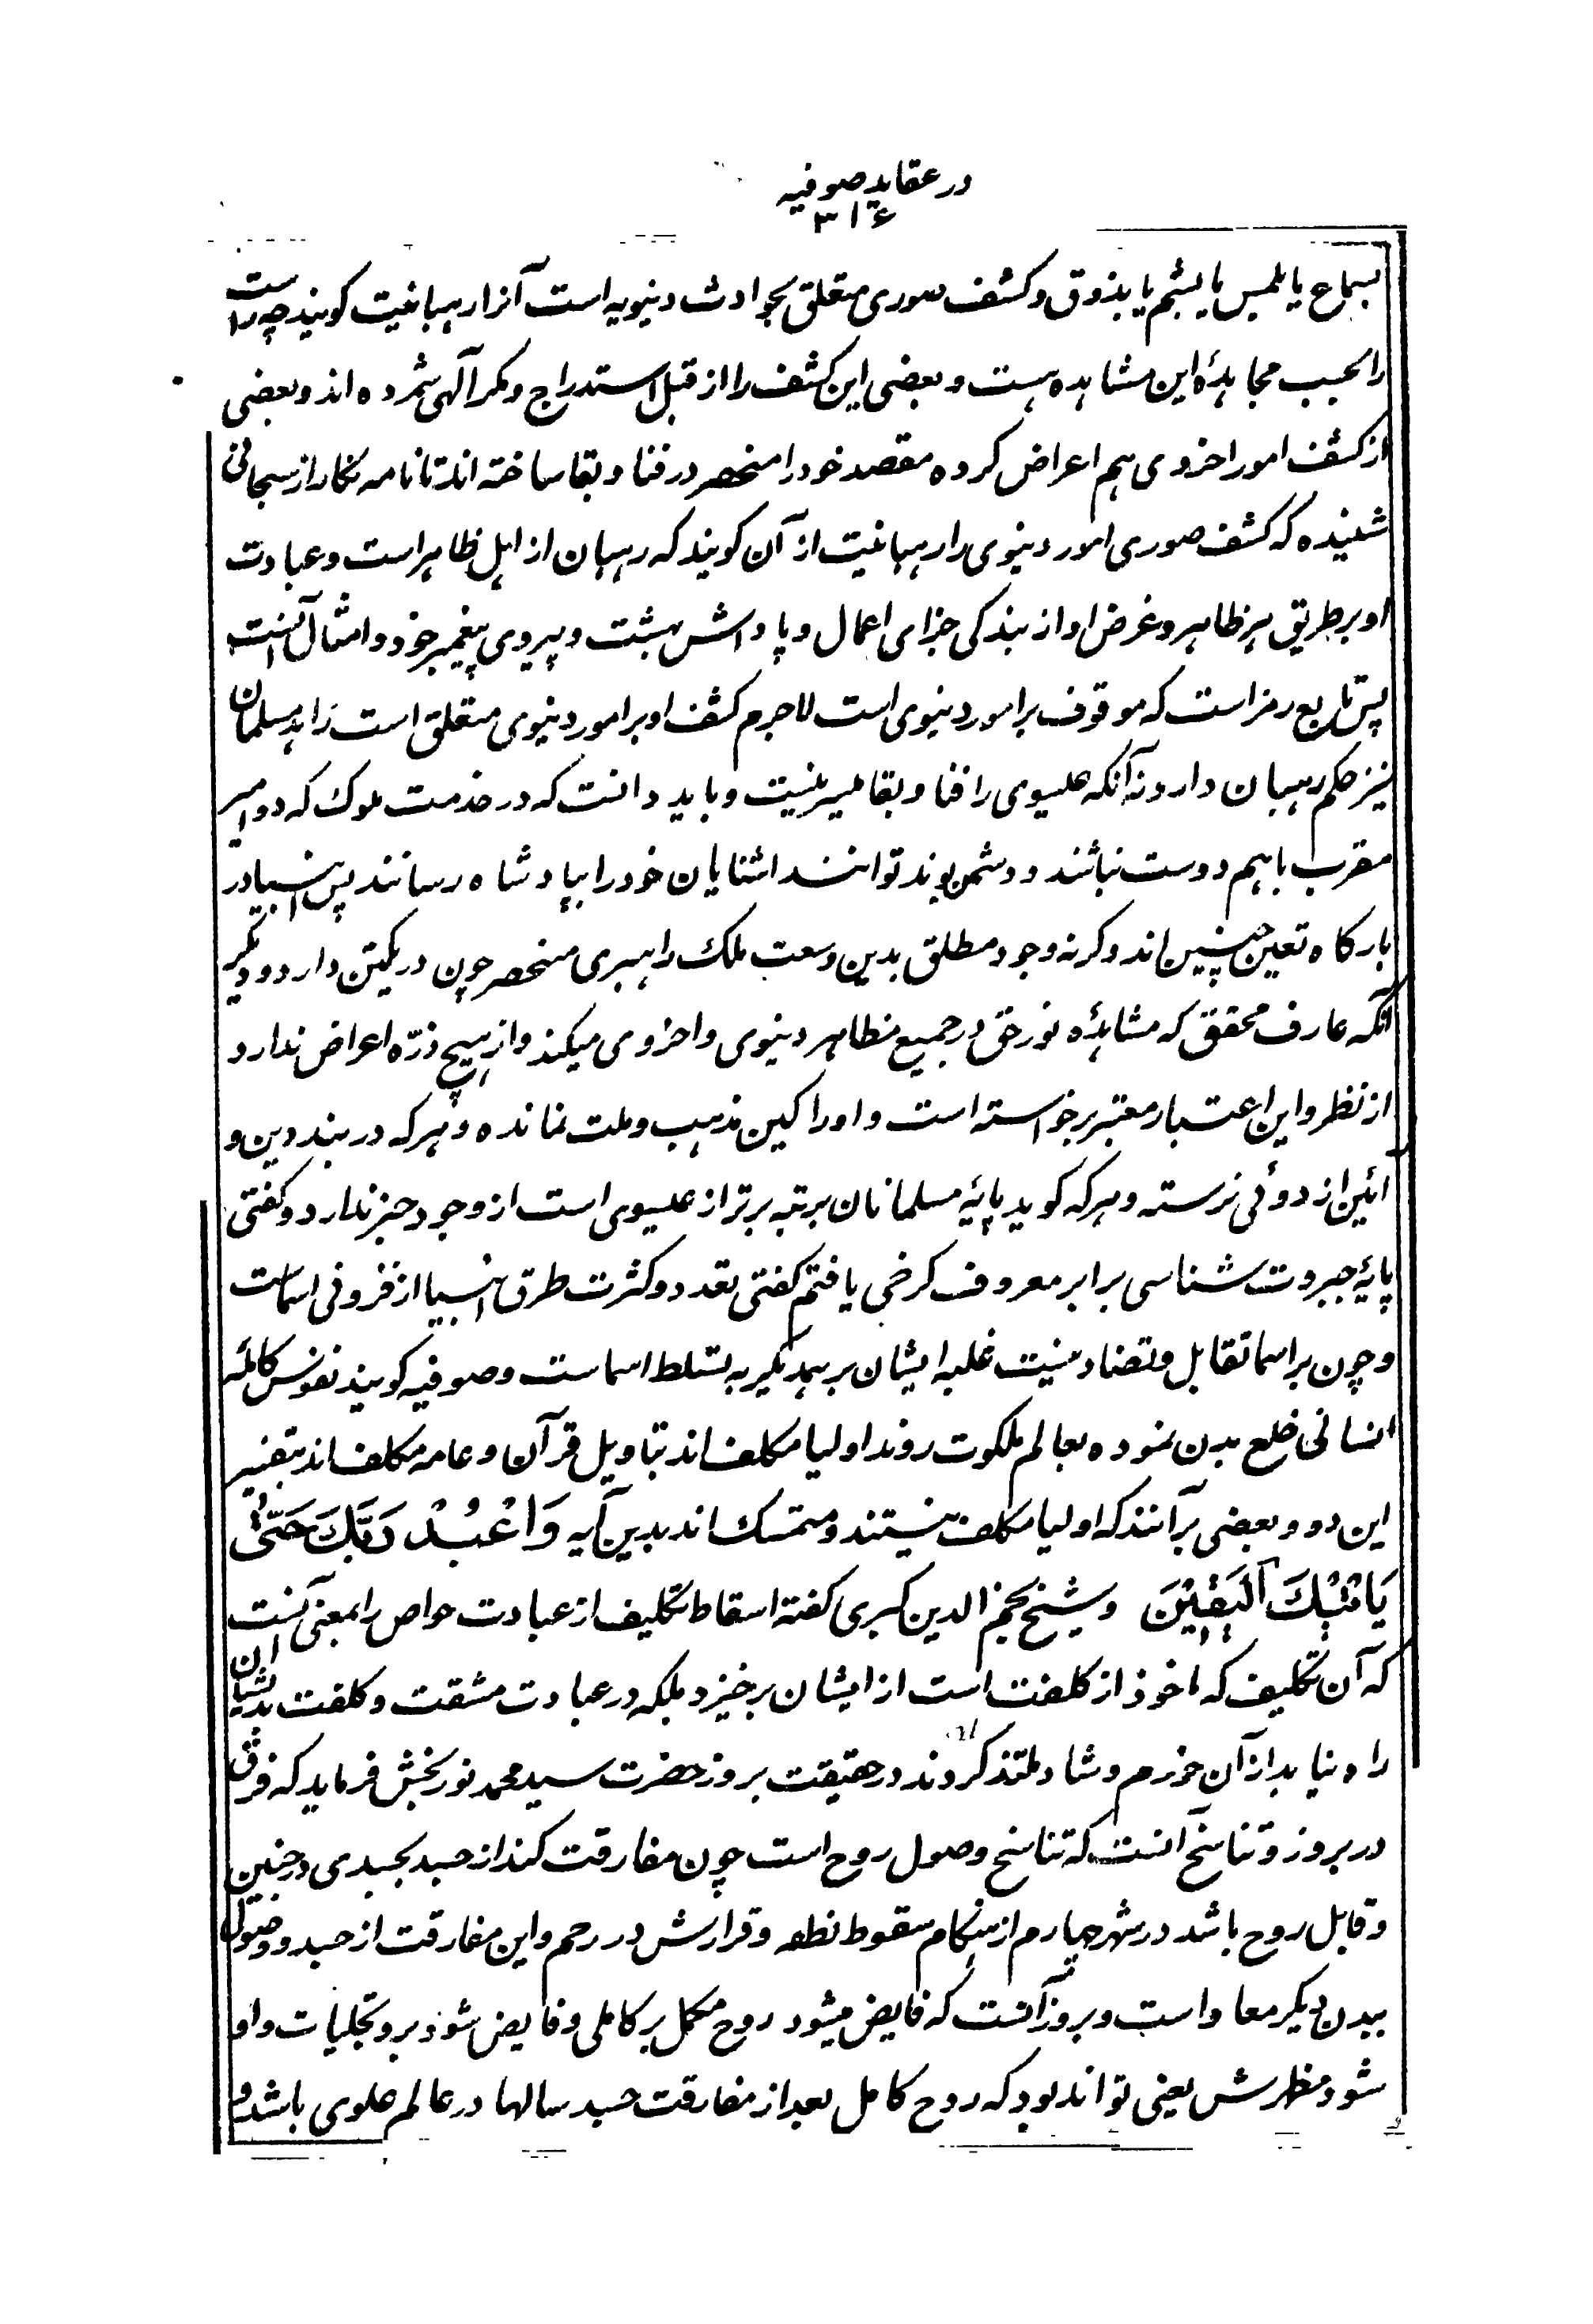 در عقاید صوفیه
۳۱۶
بسماع یا بلمس یا بشم یا بذوق و کشف صوری متعلق بحوادث دنیویه است آنرا رهبانیت کویند چه راست
را بحسب مجاهدهٔ این مشاهده هست و بعضی این کشف را از قبل استدراج و مکر آلهی شمرده اند و بعضی
از کشف امور اخروی هم اعراض کرده مقصد خود را منحصر در فنا و بقا ساخته اند تا نامه نکار از سبحانی
شنیده که کشف صوری امور دنیوی را رهبانیت از آن کویند که رهبان از اهل ظاهر است و عبادت
او بر طریق هر ظاهر و غرض او از بندکی جزای اعمال و پاداش بهشت و پیروی پیغمبر خود و امثال آنست
پس تابع رمز است که موقوف بر امور دنیوی است لاجرم کشف او بر امور دنیوی متعلق است زاهد مسلمان
نیز حکم رهبان دارد نه آنکه عیسوی را فنا و بقا میسر نیست و باید دانست که در خدمت ملوک که دو امیر
مقرب باهم دوست نباشند و دشمن بوند توانند اشنایان خود را بپادشاه رسانند پس انبیا در
بارکاه تعین چنین اند و کرنه وجود مطلق بدین وسعت ملک راهبری منحصر چون در یکتن دارد و دیکر
آنکه عارف محقق که مشاهدهٔ نور حق در جمیع مظاهر دنیوی و اخروی میکند و از هیچ ذرّه اعراض ندارد
از نظر و این اعتبار معتبر برخواسته است و او را کین مذهب و ملت نمانده و هرکه در بند دین و
آئین از دوئی نرسته و هرکه کوید پایهٔ مسلمانان بمرتبه برتر از عیسوی است از وجود خبر ندارد و کفتی
پایهٔ جبروت شناسی برابر معروف کرخی یافتم کفتی تعدد و کثرت طرق انبیا از فزونی اسماست
و چون بر اسما تقابل و تضاد نیست غلبه ایشان بر یکدیگر به تسلط اسماست و صوفیه کویند نفوس کامله
انسانی خلع بدن نموده بعالم ملکوت روند اولیا مکلف اند بتاویل قرآن و عامه مکلف اند بتفسیر
این دو و بعضی برآنند که اولیا مکلف نیستند و متمسک اند بدین آیه وَاعْبُدْ رَبَّكَ حَتّٰی
یَاْتِیَكَ الْیَقِیْنَ و شیخ نجم الدین کبری کفته اسقاط تکلیف از عبادت خواص را بمعنی آنست
که آن تکلیف که ماخوذ از کلفت است از ایشان برخیزد بلکه در عبادت مشقت و کلفت بدیشان
راه نیابد از آن خورم و شاد و ملتذ کردند در حقیقت بروز حضرت سید محمد نوربخش فرماید که فرق
در بروز و تناسخ آنست که تناسخ وصول روح است چون مفارقت کند از جسد بجسدی در جنین
و قابل روح باشد در شهر چهارم از هنکام سقوط نطفه و قرارش در رحم و این مفارقت از جسد و وصول
ببدن دیکر معا واست و بروز آنست که فایض میشود روح مکمل بر کاملی و فایض شود برو تجلیات و او
شود مظهرش یعنی تواند بود که روح کامل بعد از مفارقت جسد سالها در عالم علوی باشد و